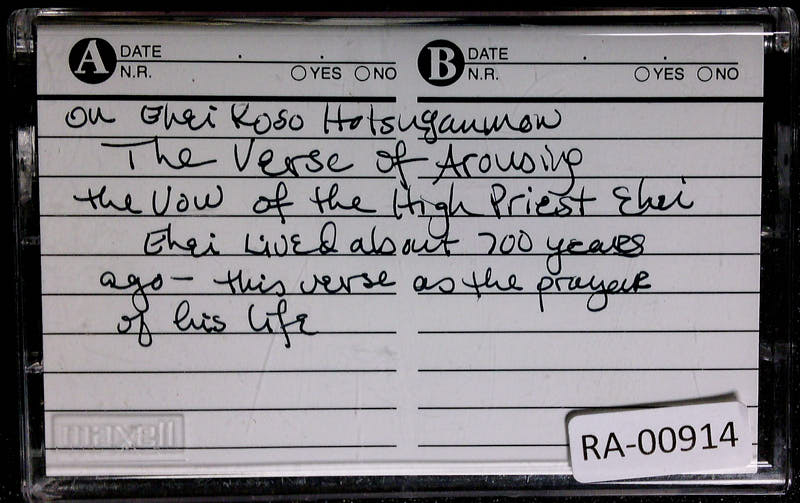 A DATE
N.R. YES NO
B DATE
N.R. YES NO
on Ehei Koso Hotsuganmon
The Verse of Arousing
the Vow of the High Priest Ehei
Ehei lived about 700 years
ago - this verse as the prayer
of his life
maxell
RA-00914